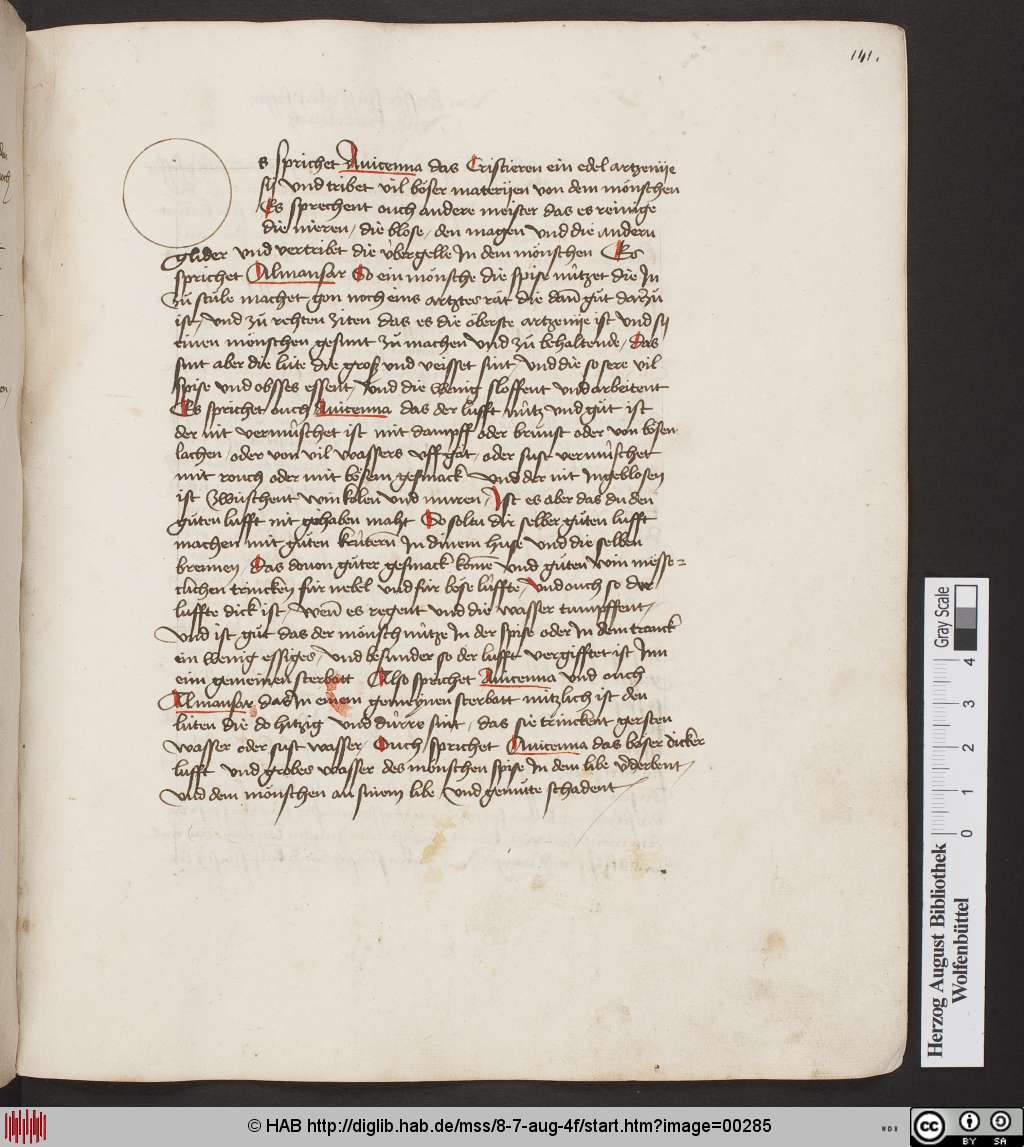 141.
s sprichet Auicenna das Cristieren ein edel artzenije
sij vnd tribet vil böser materijen von dem mönschen
Es sprechent ouch andere meister das es reinige
die nieren, die blose, den magen vnd die andern
glider vnd vertribet die übergelle Jn dem mönschen Es
sprichet Almansar So ein mönsche die spise nützet die Jn
zů stůle machet, gon noch eins artztes rät die dañ gůt darzů
ist, vnd zů rehten ziten das es die öberste artzenije ist vnd sij
einen mönschen gesunt zů machen vnd zů behaltende, das
sint aber die lüte die groß vnd veisset sint, vnd die so sere vil
spise vnd obsses essent, vnd die wenig sloffent vnd arbeitent
Es sprichet ouch Auicenna das der lufft nütz vnd gůt ist
der nit vermüschet ist mit dampff oder brunst oder von bösen
lachen, oder von vil wassers vff gat, oder sust vermüschet
mit rouch oder mit bösem gesmack vnd der nit Jngeblosen
ist zwüschent winkelen vnd muren, Jst es aber das du den
gůten lufft nit gehaben maht So soltu dir selber gůten lufft
machen mit gůten krütern̄ Jn dinem huse vnd die selben
brennen, das douon gůter gesmack kome vnd gůten win messe⸗
clichen trincken für nebel vnd für böse lüffte, vnd ouch so der
luffte dick ist, wen̄ es regent vnd die wasser tumpffent,
vnd ist gůt das der mönsch nütze Jn der spise oder Jn dem tranck
ein wenig essiges, vnd besunder so der lufft vergifftet ist Jnn
eim gemeinen sterbott Also sprichet Auicenna vnd ouch
Almansar, das Jn einem gemeynen sterbott nützlich ist den
lüten die do hitzig vnd dürre sint, das sie trinckent gersten
wasser oder sust wasser, Ouch sprichet Auicenna das böser dicker
lufft vnd grobes wasser des mönschen spise Jn dem libe v̄derbent,
vnd dem mönschen an sinem libe vnd gemüte schadent
Herzog August Bibliothek
Wolfenbüttel
Gray Scale
0 1 2 3 4
© HAB http://diglib.hab.de/mss/8-7-aug-4f/start.htm?image=00285
WDB
cc BY SA